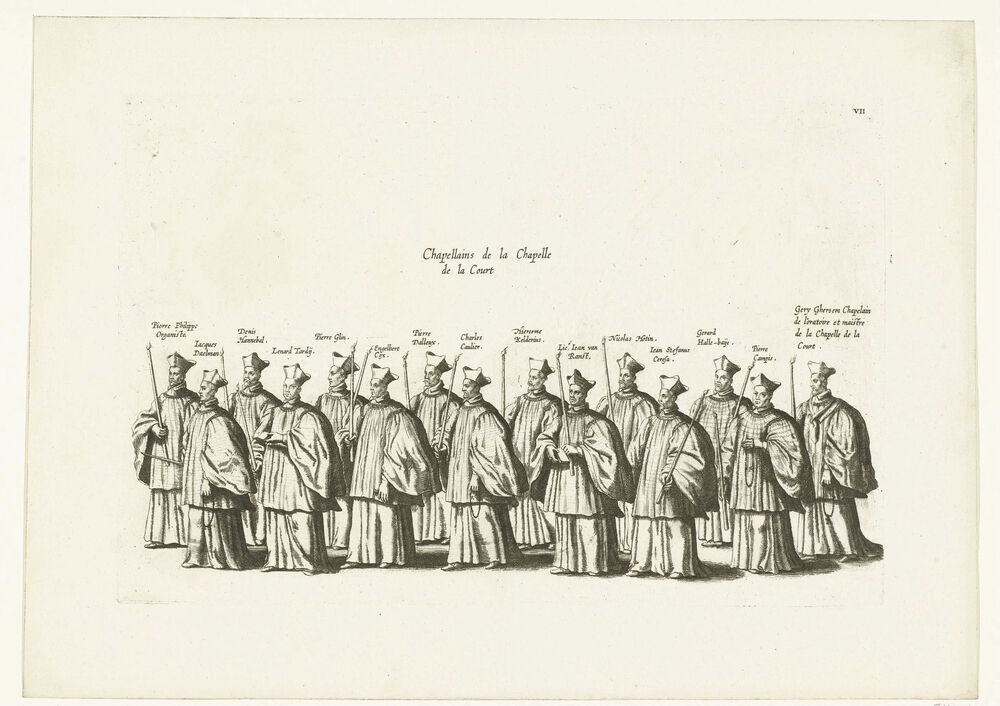 VII
Chapellains de la Chapelle
de la Court
Pierre Philippe
Organiste.
Iacques
Daelman.
Denis
Hannebel.
Lenard Tardij.
Pierre Glin.
Engelbert
Cox.
Pierre
Dalleux.
Charles
Caulier.
Hierôme
Kelderius.
Lic. Iean van
Ranst.
Nicolas Hotin.
Iean Stefanus
Ceresa.
Gerard
Halle-baije.
Pierre
Camgis.
Gery Ghersem Chapelain
de l'oratoire et maistre
de la Chapelle de la
Court.